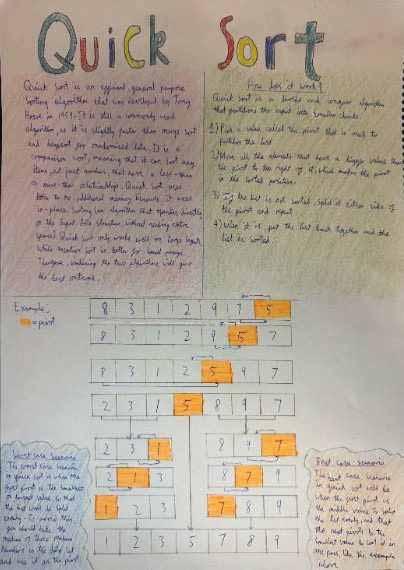 Quick Sort
Quick Sort is an efficient, general purpose
sorting algorithm that was developed by Tony
Hoare in 1959. It is still a commonly used
algorithm, as it is slightly faster than merge sort
and heapsort for randomised data. It is a
comparison sort, meaning that it can sort any
items, not just numbers, that have a less-than
or more-than relationship. Quick sort uses
little to no additional memory because it uses
in-place sorting (an algorithm that operates directly
on the input data structure without needing extra
space). Quick Sort only works well on large inputs
while insertion sort is better for small
Therefore, combining the two algorithms will give
the best outcome.
How does it work?
Quick sort is a divide and conquer algorithm
that partitions the input into smaller chunks.
1) Pick a value called the pivot that is used to
partition the list
2) Move all the elements that have a bigger value than
the pivot to the right of it, which makes the pivot
in the sorted position.
3) If the list is not sorted, split it either side of
the pivot and repeat
4) When it is, put the list back together and the
list is sorted.
Example
= pivot
8 3 1 2 9 7 5
8 3 1 2 9 5 7
8 3 1 2 5 9 7
2 3 1 5 8 9 7
2 3 1 8 9 7
2 1 3 8 7 9
1 2 3 7 8 9
1 2 3 5 7 8 9
Worst case scenario
The worst case scenario
in quick sort is when the
first pivot is the smallest
or largest value so that
the list won't be split
evenly. To avoid this,
you should take the
median of three random
numbers in the data set
and use it as the pivot
Best case scenario
The best case scenario
in quick sort will be
when the first pivot is
the middle value to split
the list evenly and that
the next pivot is the
smallest value to sort it in
one pass, like the example
above